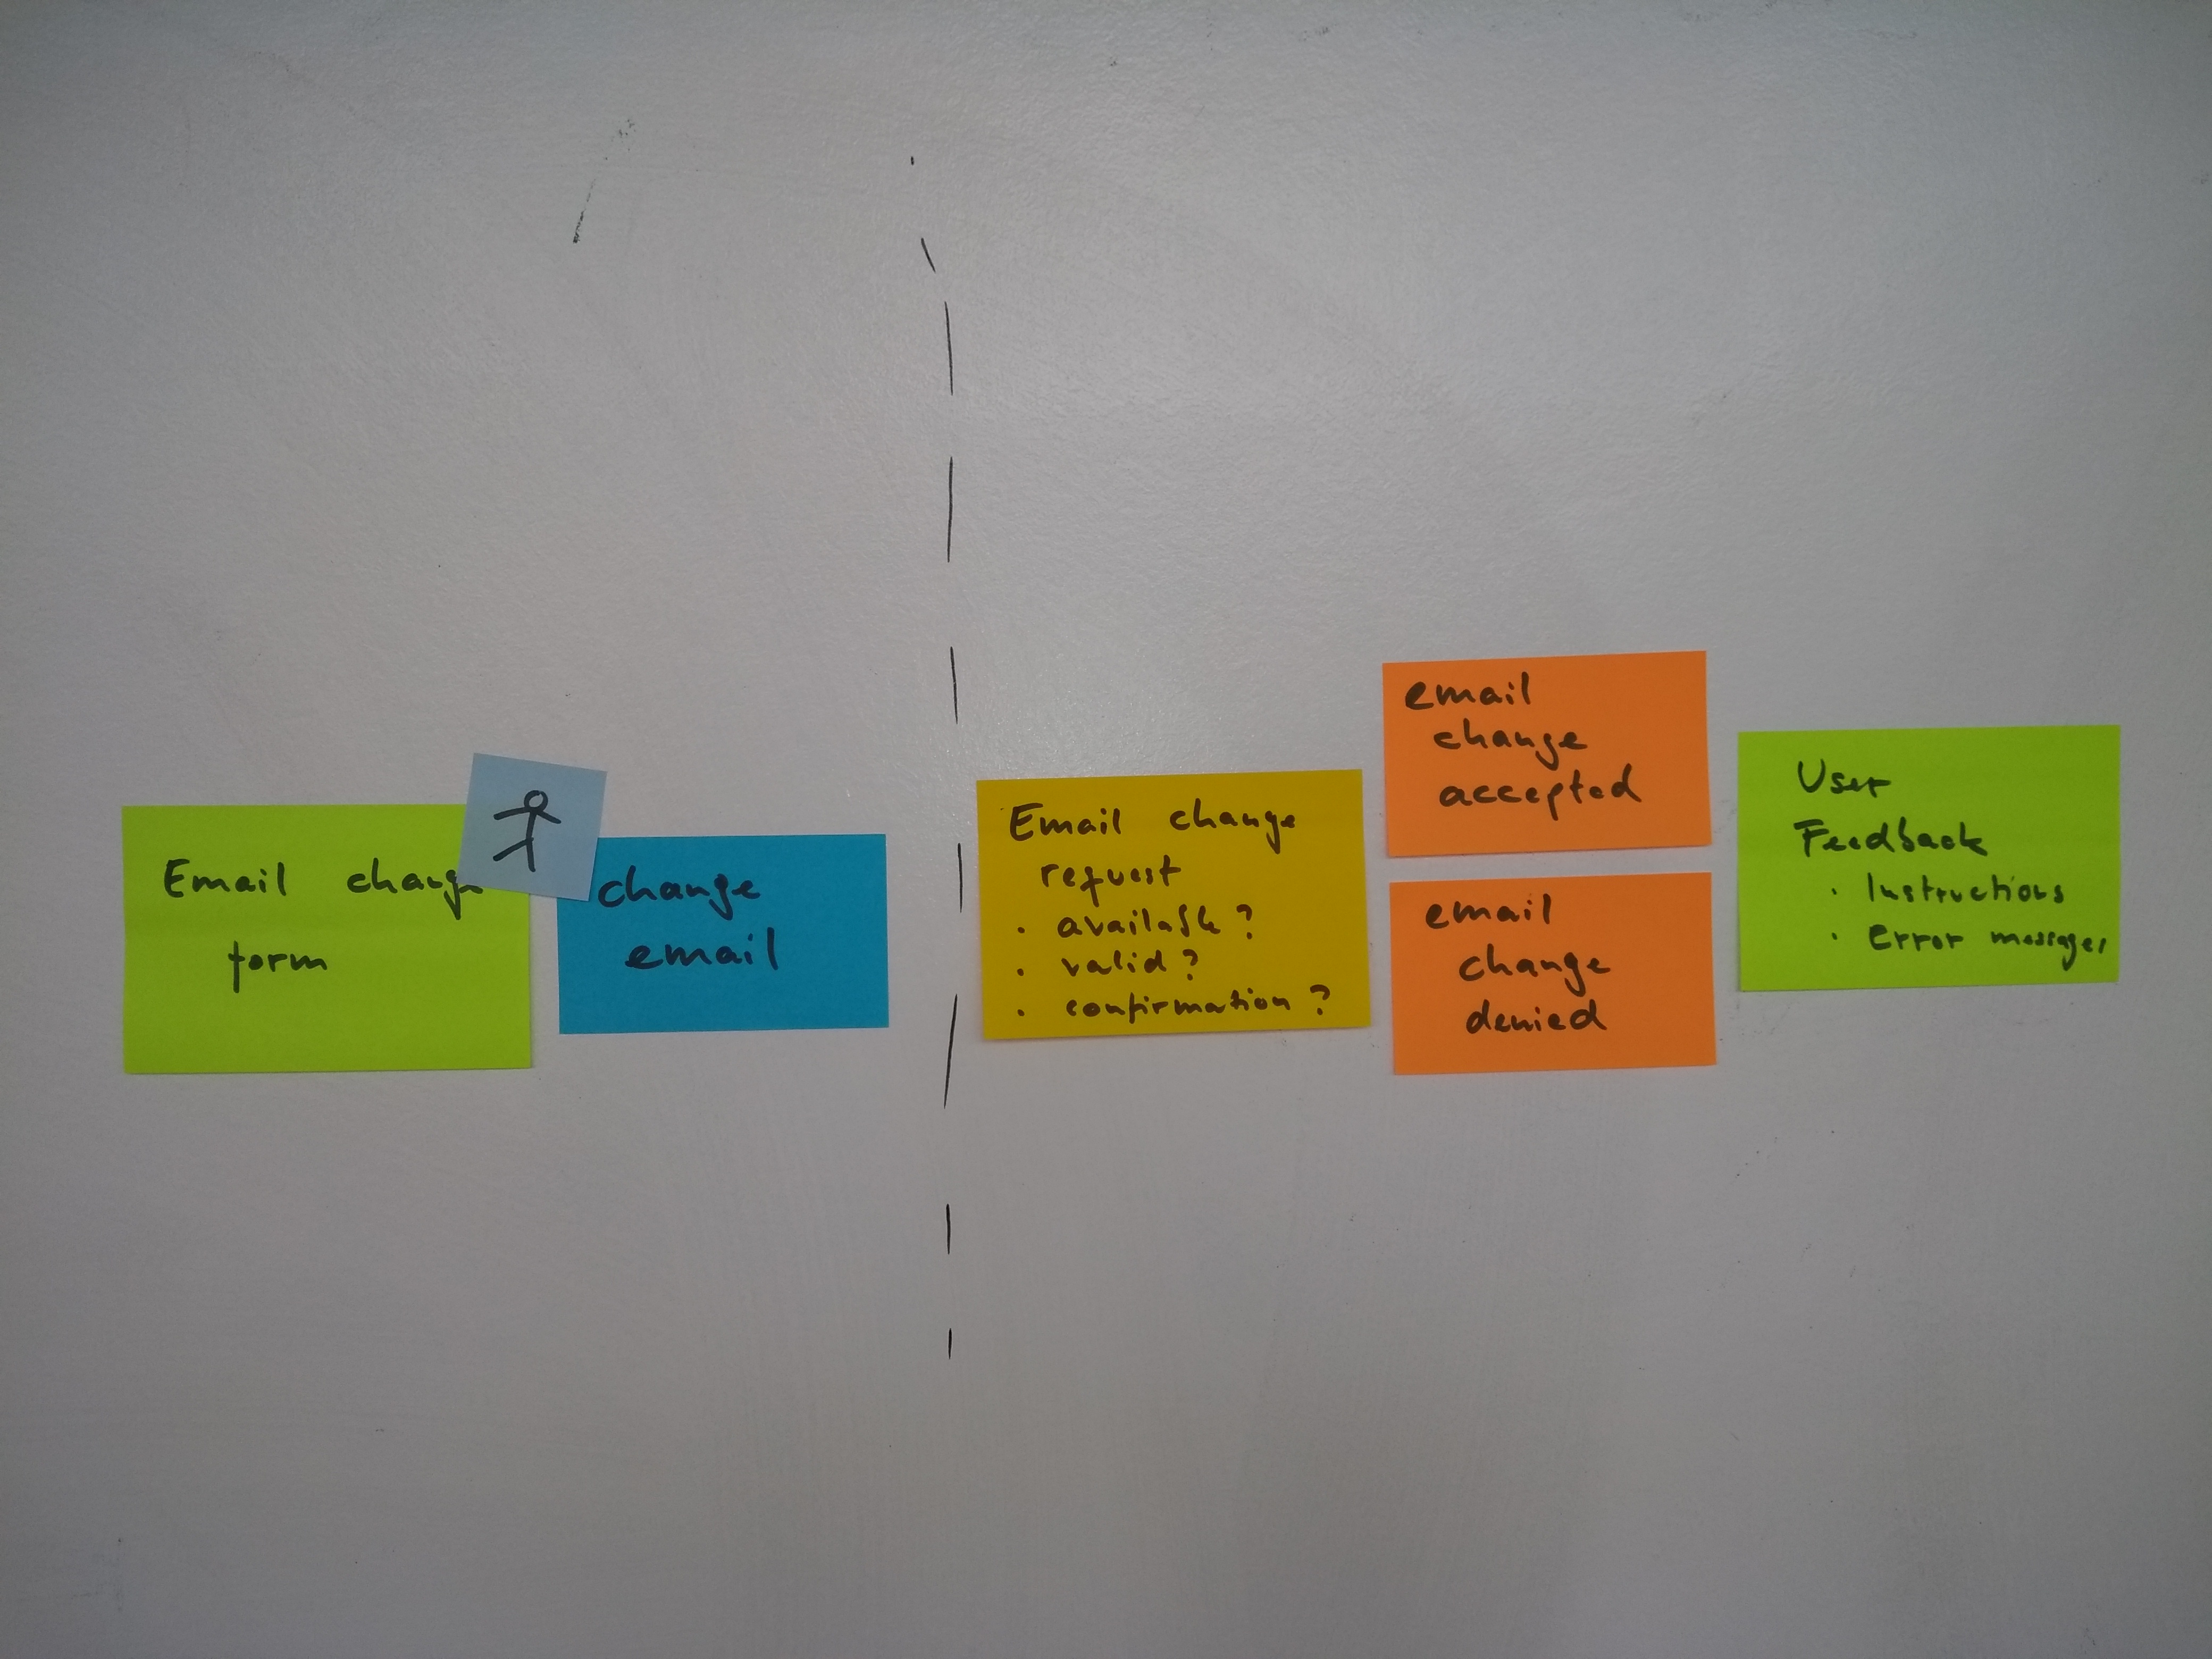 Email change
form
change
email
Email change
request
. available?
. valid?
. confirmation?
email
change
accepted
email
change
denied
User
Feedback
. Instructions
. Error messages